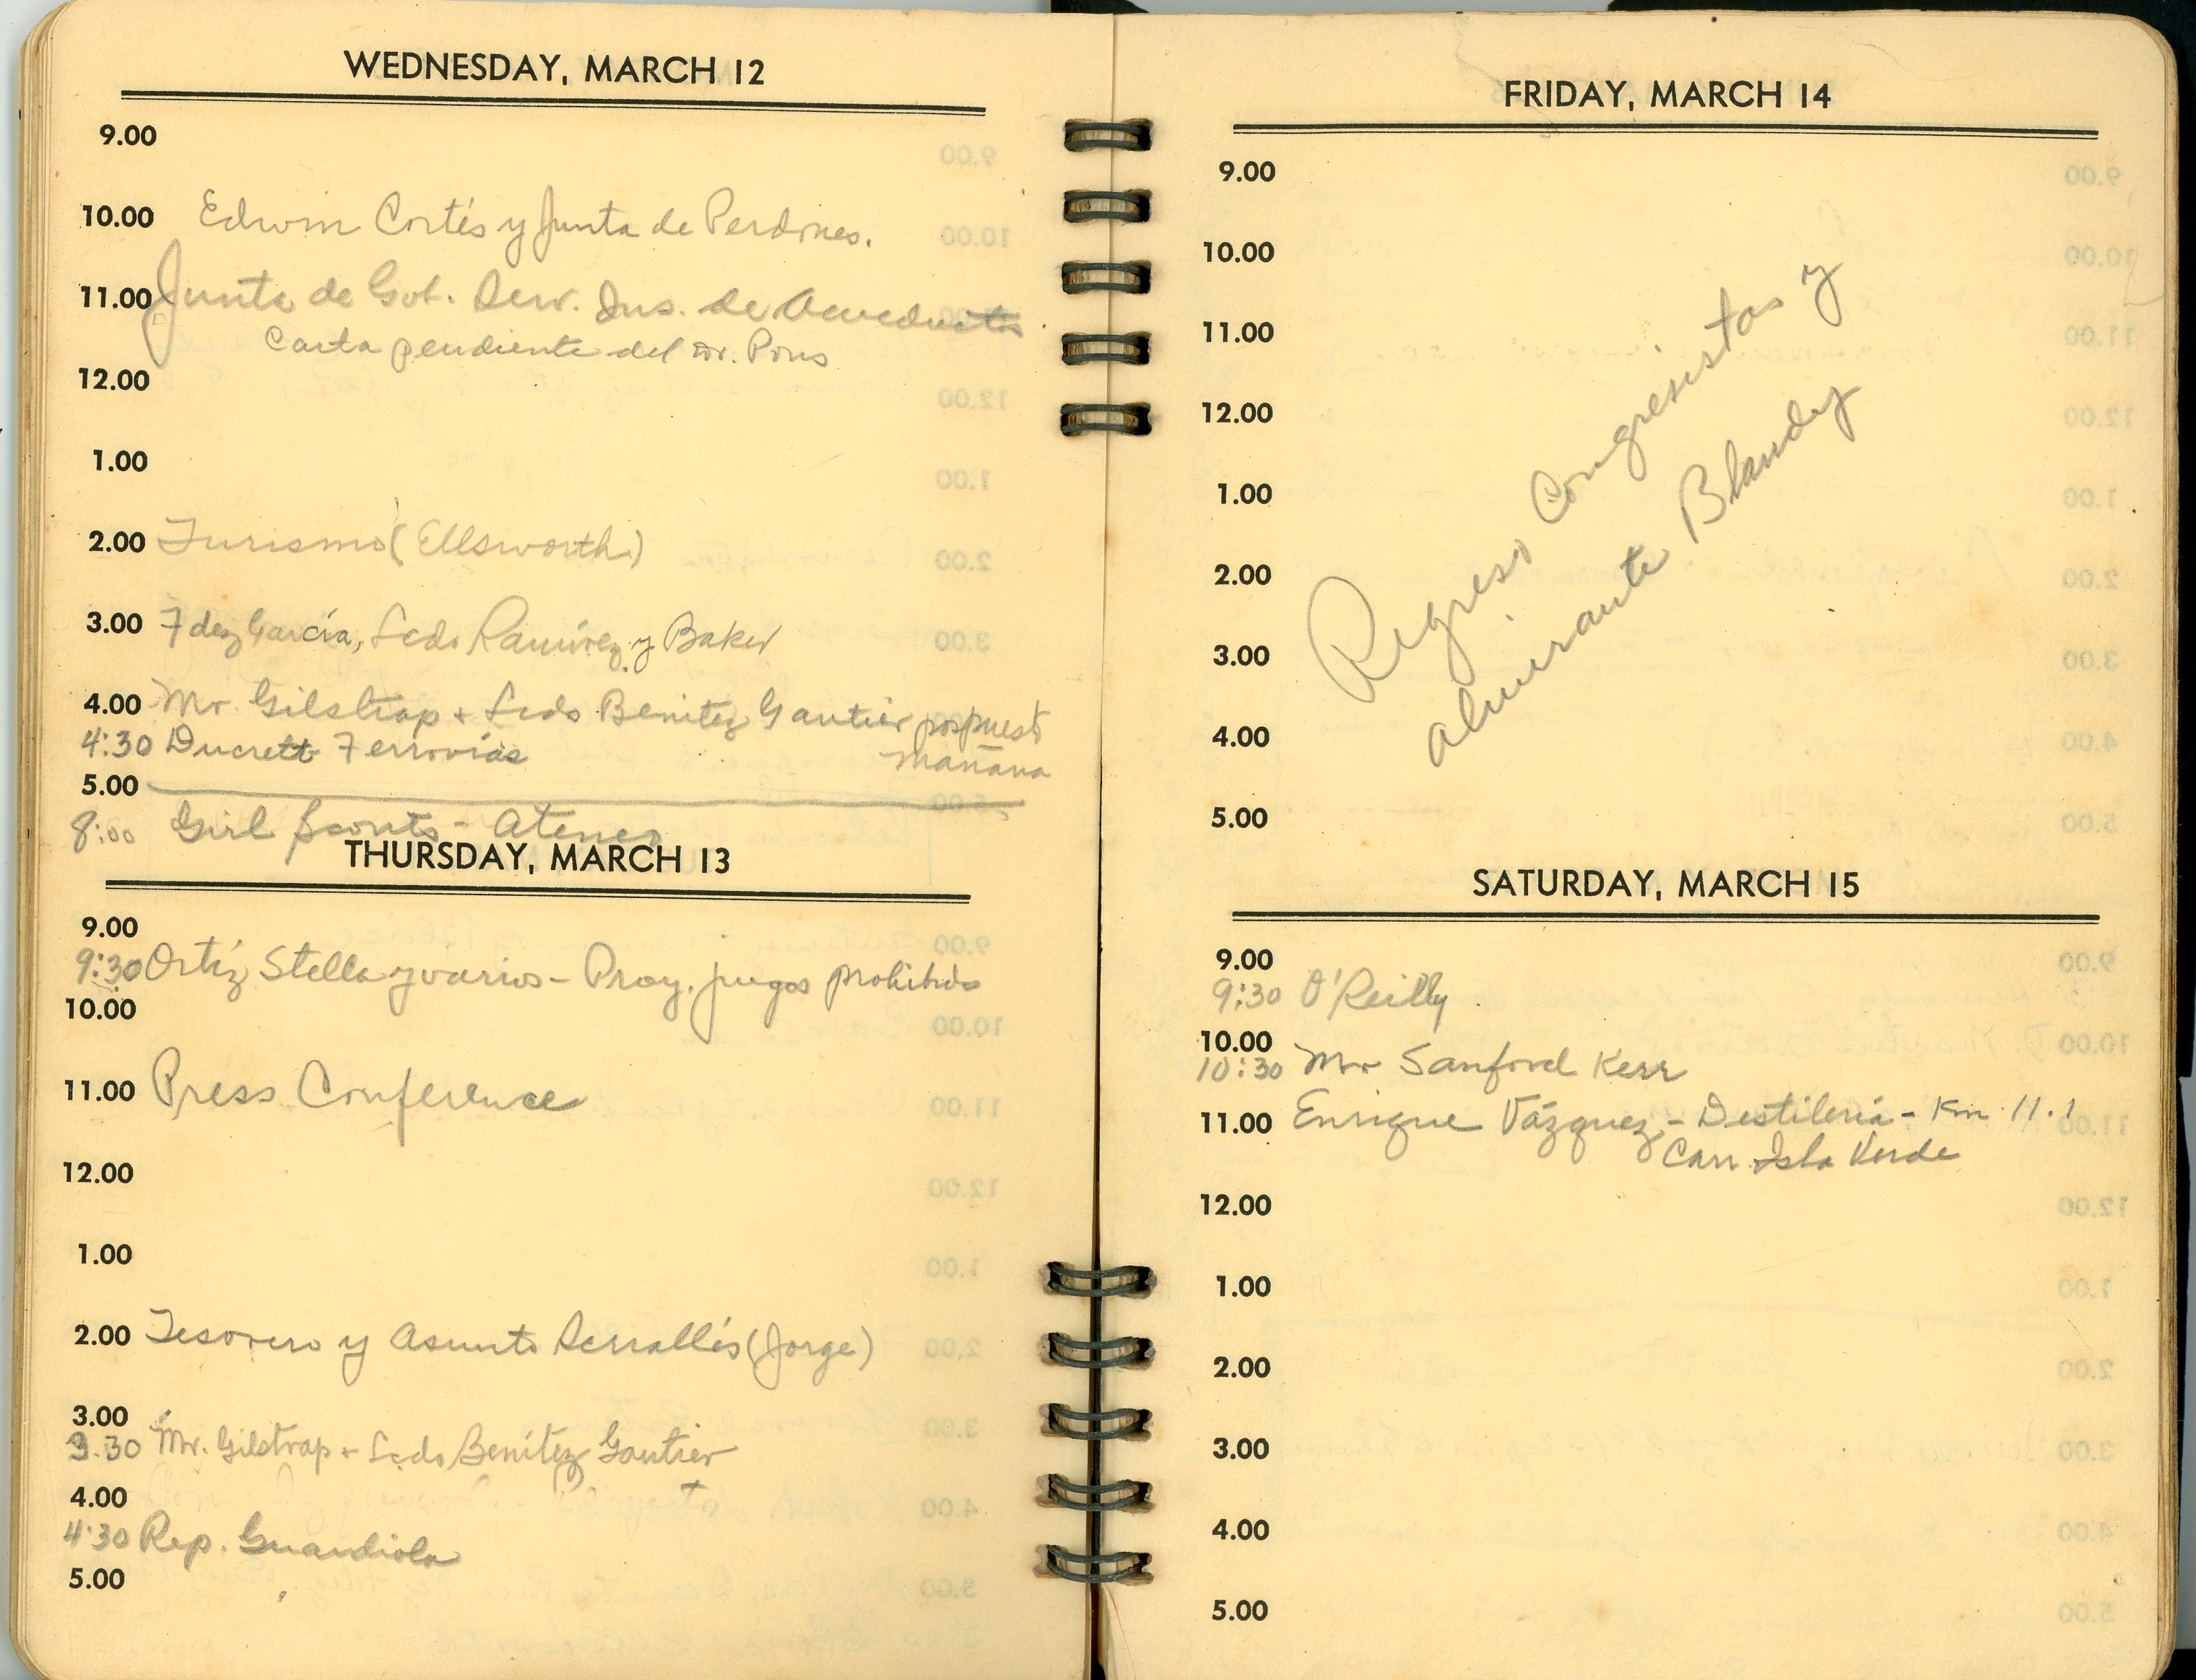 WEDNESDAY, MARCH 12
9.00
10.00 Edwin Cortés y Junta de Perdones.
11.00 Junta de Gob. Serv. Ins. de Acueductos
Carta pendiente del Dr. Pons
12.00
1.00
2.00 Turismo (Ellsworth)
3.00 Fdez García, Lcdo Ramírez y Baker
4.00 Mr. Gilstrap + Lcdo Benítez Gautier pospuesto
4:30 Ducrett Ferrovías mañana
5.00
8:00 Girl Scouts - Ateneo
THURSDAY, MARCH 13
9.00
9:30 Ortíz Stella y varios - Proy. juegos prohibidos
10.00
11.00 Press Conference
12.00
1.00
2.00 Tesorero y Asunto Serrallés (Jorge)
3.00
3.30 Mr. Gilstrap + Lcdo Benítez Gautier
4.00
4:30 Rep. Guardiola
5.00
FRIDAY, MARCH 14
9.00
10.00
11.00
12.00
1.00
2.00
3.00
4.00
5.00
Regreso Congresistas y
Almirante Blandy
SATURDAY, MARCH 15
9.00
9:30 O'Reilly
10.00
10:30 Mr Sanford Kerr
11.00 Enrique Vázquez - Destilería - Km. 11.1
Carr. Isla Verde
12.00
1.00
2.00
3.00
4.00
5.00